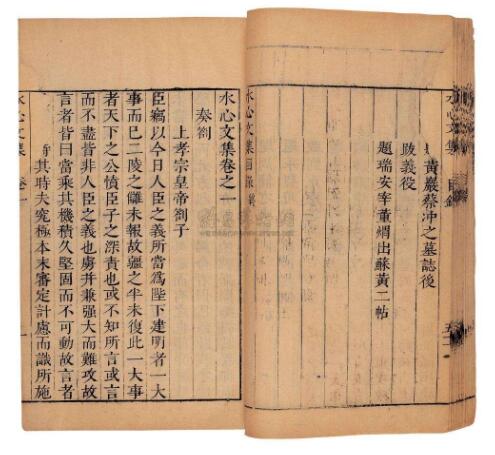 水心文集 目錄
黃巖蔡冲之墓誌後
跋義役
題瑞安宰董煟出蘇黃二帖
水心文集目錄
水心文集卷之一
奏劄
上孝宗皇帝劄子
臣竊以今日人臣之義所當爲陛下建明者一大
事而已二陵之讎未報故疆之半未復此一大事
者天下之公憤臣子之深責也或不知所言或言
而不盡皆非人臣之義也虜并兼强大而難攻故
言者皆曰當乘其機積久堅固而不可動故言者
其時夫究極本末審定計慮而識所施
水心文集 卷一 一